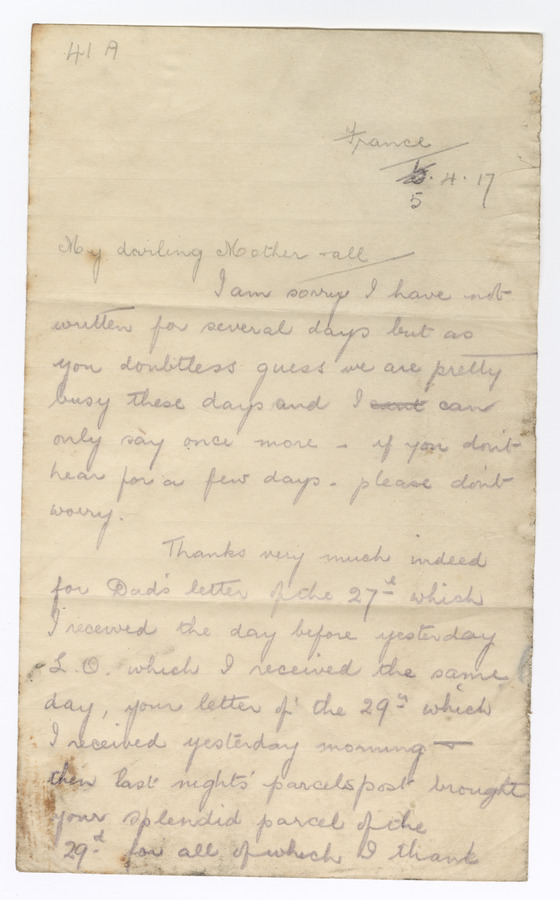 41 A
France
5.4.17
My darling Mother & all
I am sorry I have not
written for several days but as
you doubtless guess we are pretty
busy these days and I can
only say once more - if you don't
hear for a few days - please don't
worry.
Thanks very much indeed
for Dad's letter of the 27th which
I received the day before yesterday
L.O. which I received the same
day, your letter of the 29th which
I received yesterday morning -
then last nights' parcels post brought
your splendid parcel of the
29d for all of which I thank